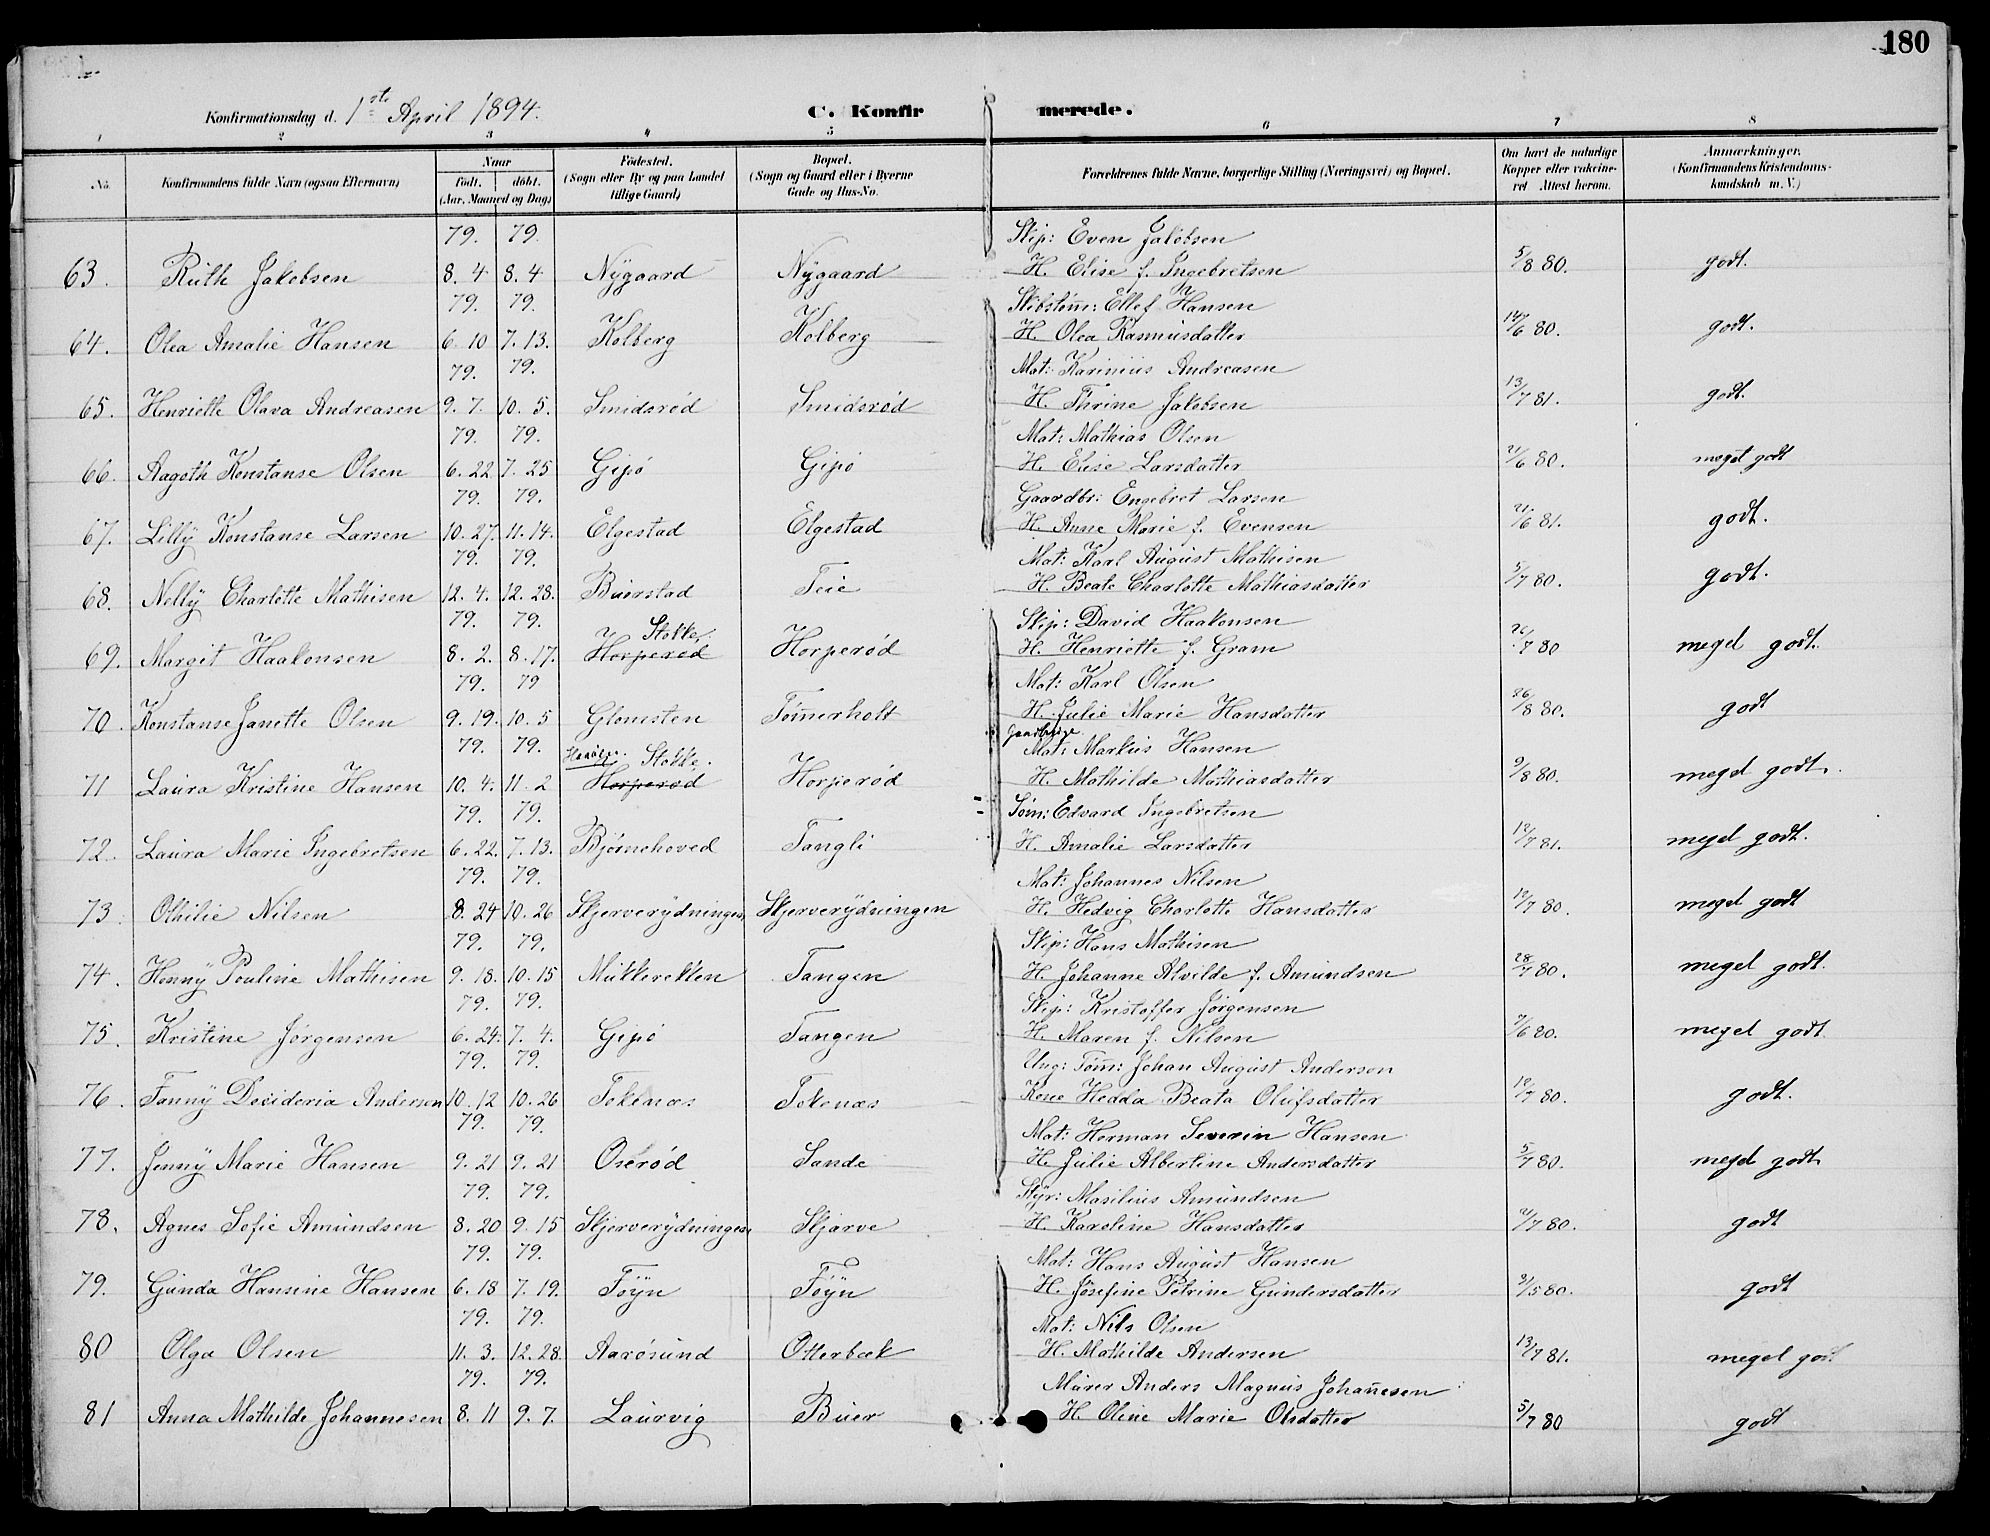 180
Konfirmationsdag d. 1ste April 1894.
C. Konfirmerede.
1 2 3 4 5 6 7 8
No.
Konfirmandens fulde Navn (ogsaa Efternavn)
Naar
født. døbt.
(Aar, Maaned og Dag)
Fødested.
(Sogn eller By og paa Landet
tillige Gaard)
Bopæl.
(Sogn og Gaard eller i Byerne
Gade og Hus-No.
Forældrenes fulde Navne, borgerlige Stilling (Næringsvei) og Bopæl.
Om havt de naturlige
Kopper eller vakcine-
ret Attest herom.
Anmærkninger.
(Konfirmandens Kristendoms-
kundskab m. V.)
79. 79. Skip: Even Jakobsen
63. Ruth Jakobsen 8. 4 8. 4 Nygaard Nygaard H. Elise f. Ingebretsen 5/8 80. godt.
79. 79. Skibstøm: Ellef Hansen
64. Olea Amalie Hansen 6. 10 7. 13. Kolberg Kolberg H. Olea Rasmusdatter 14/6 80. godt.
79. 79. Mat: Karinius Andreasen
65. Henriette Olava Andreasen 9. 7. 10. 5. Smidsrød Smidsrød H. Thrine Jakobsen 13/7 81. godt.
79. 79. Mat: Mathias Olsen
66. Aagoth Konstanse Olsen 6. 22 7. 25 Gipø Gipø H. Elise Larsdatter 21/6 80. meget godt
79. 79. Gaardbr: Engebret Larsen
67. Lilly Konstanse Larsen 10. 27. 11. 14. Elgestad Elgestad H. Anne Marie f. Evensen 21/6 81. godt.
79. 79. Mat: Karl August Mathisen
68. Nelly Charlotte Mathisen 12. 4. 12. 28. Buerstad Teie H. Beate Charlotte Mathiasdatter 5/7 80. godt.
79. 79. Stokke. Skip: David Haakonsen
69. Margit Haakonsen 8. 2. 8. 17. Horperød Horperød H. Henriette f. Gram 26/7 80 meget godt.
79. 79 Mat: Karl Olsen
70. Konstanse Janette Olsen 9. 19. 10. 5 Glomsten Tømerholt H. Julie Marie Hansdatter 26/8 80. godt
79. 79. Stokke. Gaardbruge. Mat: Markus Hansen
71 Laura Kristine Hansen 10. 4. 11. 2 Horperød Horperød H. Mathilde Mathiasdatter 9/8 80. meget godt.
79. 79. Tøm: Edvard Ingebretsen
72. Laura Marie Ingebretsen 6. 22. 7. 13. Bjørnehoved Tangli H. Amalie Larsdatter 12/7 81. meget godt.
79. 79. Mat: Johannes Nilsen
73. Othilie Nilsen 8. 24 10. 26 Skjerverydningen Skjerverydningen H. Hedvig Charlotte Hansdatter 12/7 80. meget godt
79. 79. Skip: Hans Mathisen
74. Henny Pouline Mathisen 9. 18. 10. 15 Mukkerekken Tangen H. Johanne Alvilde f. Amundsen 28/7 80. meget godt.
79. 79. Skip: Kristoffer Jørgensen
75. Kristine Jørgensen 6. 24. 7. 4. Gipø Tangen H. Maren f. Nilsen 7/6 80. meget godt.
79. 79. Ung: Tøm: Johan August Anderson
76. Fanny Desideria Anderson 10. 12 10. 26 Tokenæs Tokenæs Kone Hedda Beata Olufsdatter 12/7 80. godt.
79. 79. Mat: Herman Severin Hansen
77. Jenny Marie Hansen 9. 21 9. 21 Oserød Sande H. Julie Albertine Andersdatter 5/7 80. meget godt
79. 79. Styr: Masilius Amundsen
78. Agnes Sofie Amundsen 8. 20 9. 15 Skjerverydningen Skjærve H. Karoline Hansdatter 2/7 80. godt
79. 79. Mat: Hans August Hansen
79. Gunda Hansine Hansen 6. 18 7. 19. Føyn Føyn H. Josefine Petrine Gundersdatter 3/5 80. godt
79. 79. Mat: Nils Olsen
80 Olga Olsen 11. 3. 12. 28. Aarøsund Otterbæk H. Mathilde Andersen 13/7 81. meget godt
79. 79. Murer Anders Magnus Johannesen
81 Anna Mathilde Johannesen 8. 11 9. 7. Laurvig Buer H. Oline Marie Olsdatter 5/7 80 godt